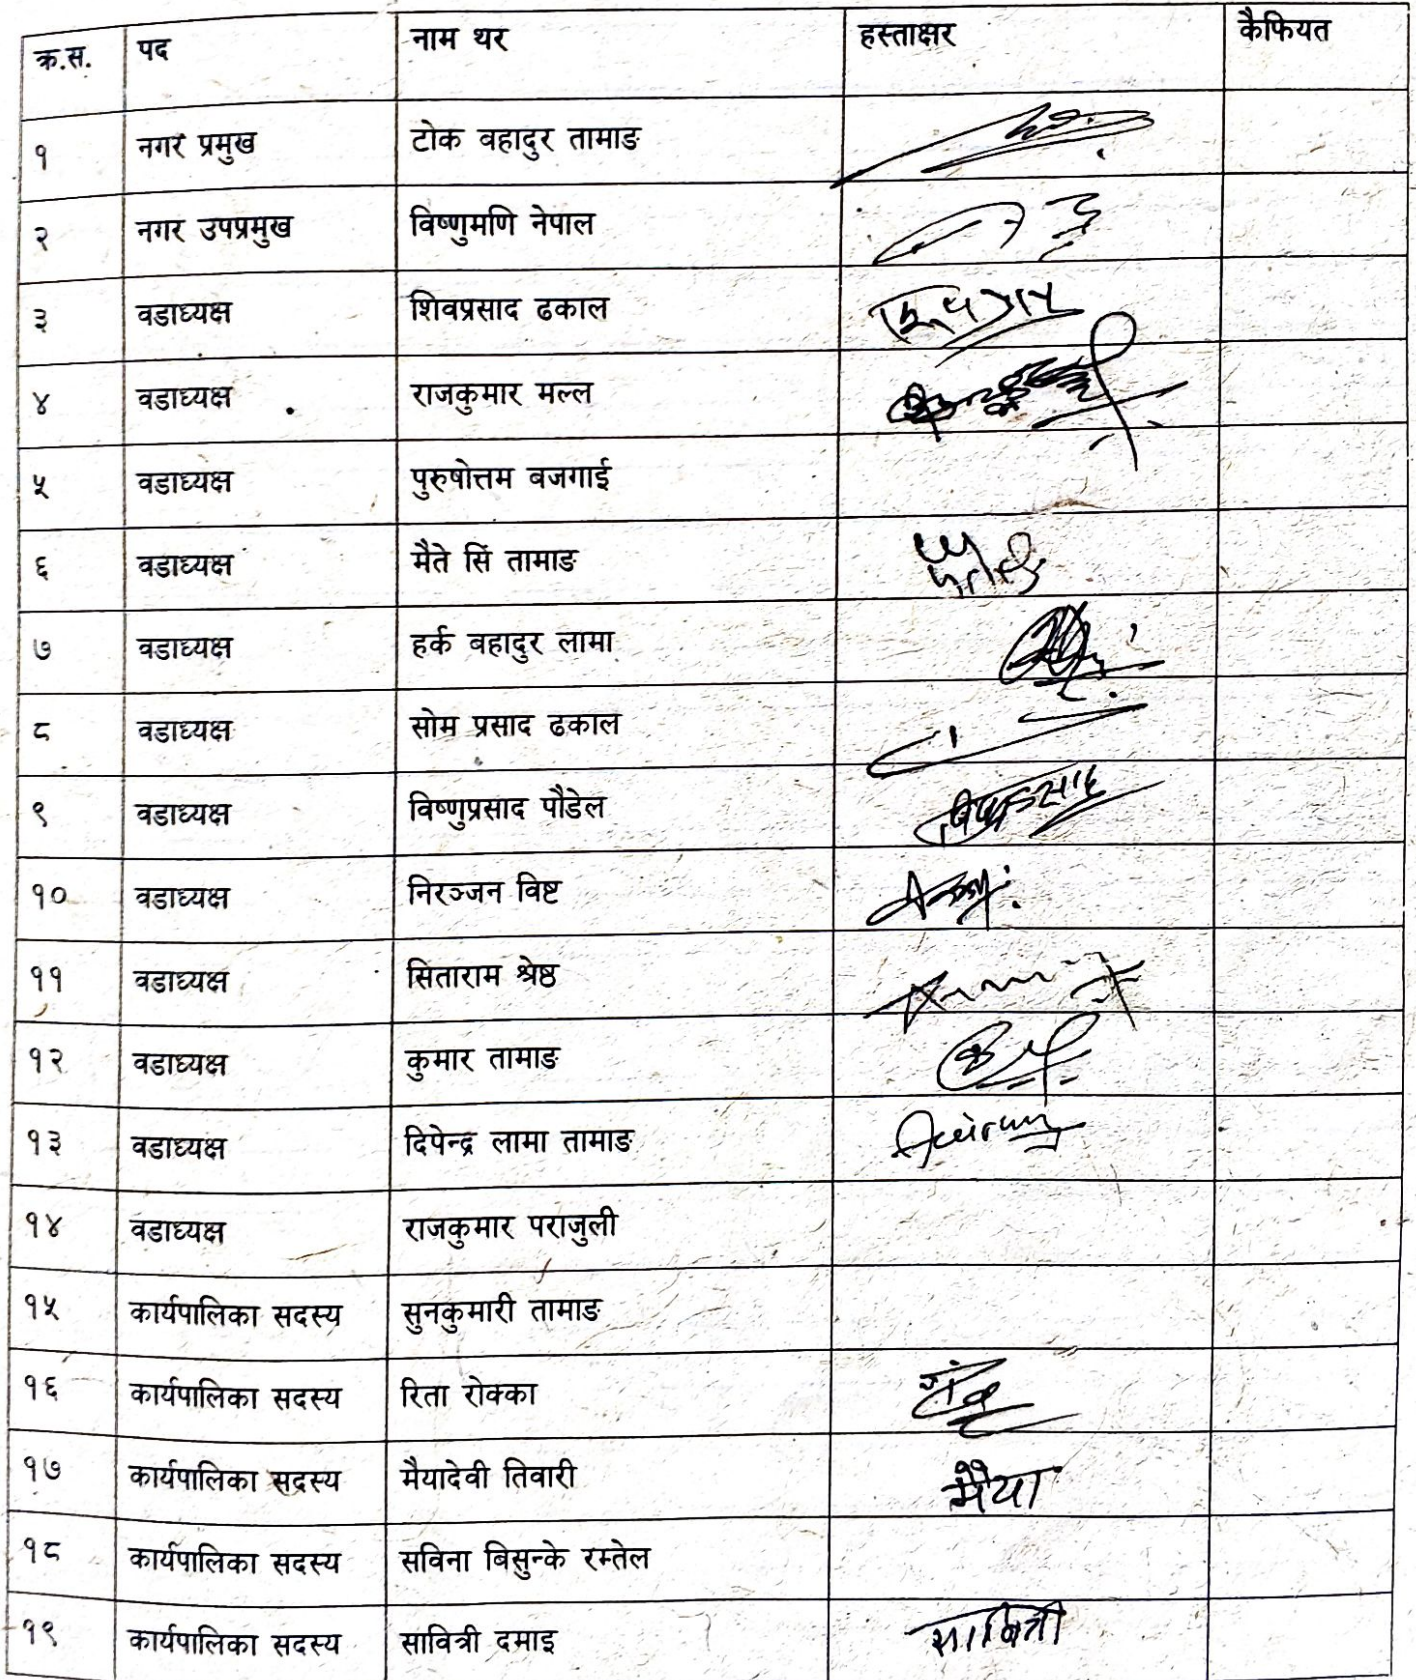 क्र.स. पद नाम थर हस्ताक्षर कैफियत
१ नगर प्रमुख टोक वहादुर तामाङ
२ नगर उपप्रमुख विष्णुमणि नेपाल
३ वडाध्यक्ष शिवप्रसाद ढकाल
४ वडाध्यक्ष राजकुमार मल्ल
५ वडाध्यक्ष पुरुषोत्तम वजगाई
६ वडाध्यक्ष मैते सिं तामाङ
७ वडाध्यक्ष हर्क वहादुर लामा
८ वडाध्यक्ष सोम प्रसाद ढकाल
९ वडाध्यक्ष विष्णुप्रसाद पौडेल
१० वडाध्यक्ष निरञ्जन विष्ट
११ वडाध्यक्ष सिताराम श्रेष्ठ
१२ वडाध्यक्ष कुमार तामाङ
१३ वडाध्यक्ष दिपेन्द्र लामा तामाङ
१४ वडाध्यक्ष राजकुमार पराजुली
१५ कार्यपालिका सदस्य सुनकुमारी तामाङ
१६ कार्यपालिका सदस्य रिता रोक्का
१७ कार्यपालिका सदस्य मैयादेवी तिवारी मैया
१८ कार्यपालिका सदस्य सविना बिसुन्के रम्तेल
१९ कार्यपालिका सदस्य सावित्री दमाइ सावित्री